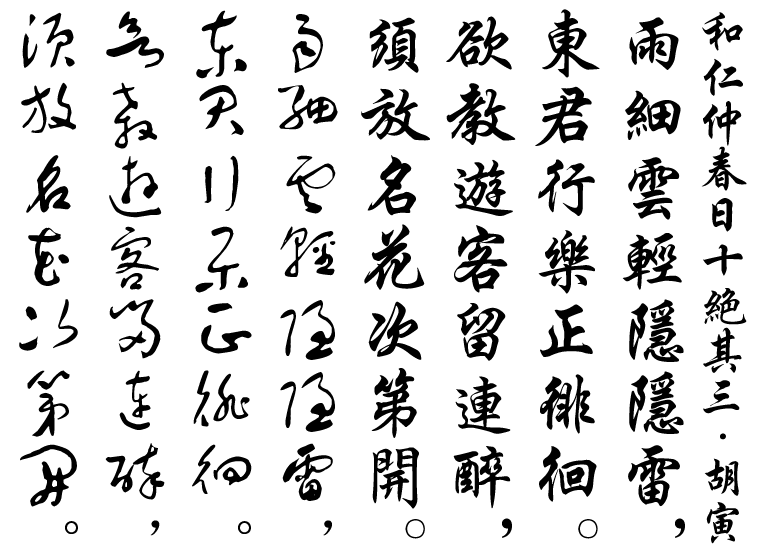 和仁仲春日十絶其三・胡寅
雨細雲輕隱隱雷，
東君行樂正徘徊。
欲教遊客留連醉，
須放名花次第開。
雨細雲輕隱隱雷，
東君行樂正徘徊。
欲教遊客留連醉，
須放名花次第開。